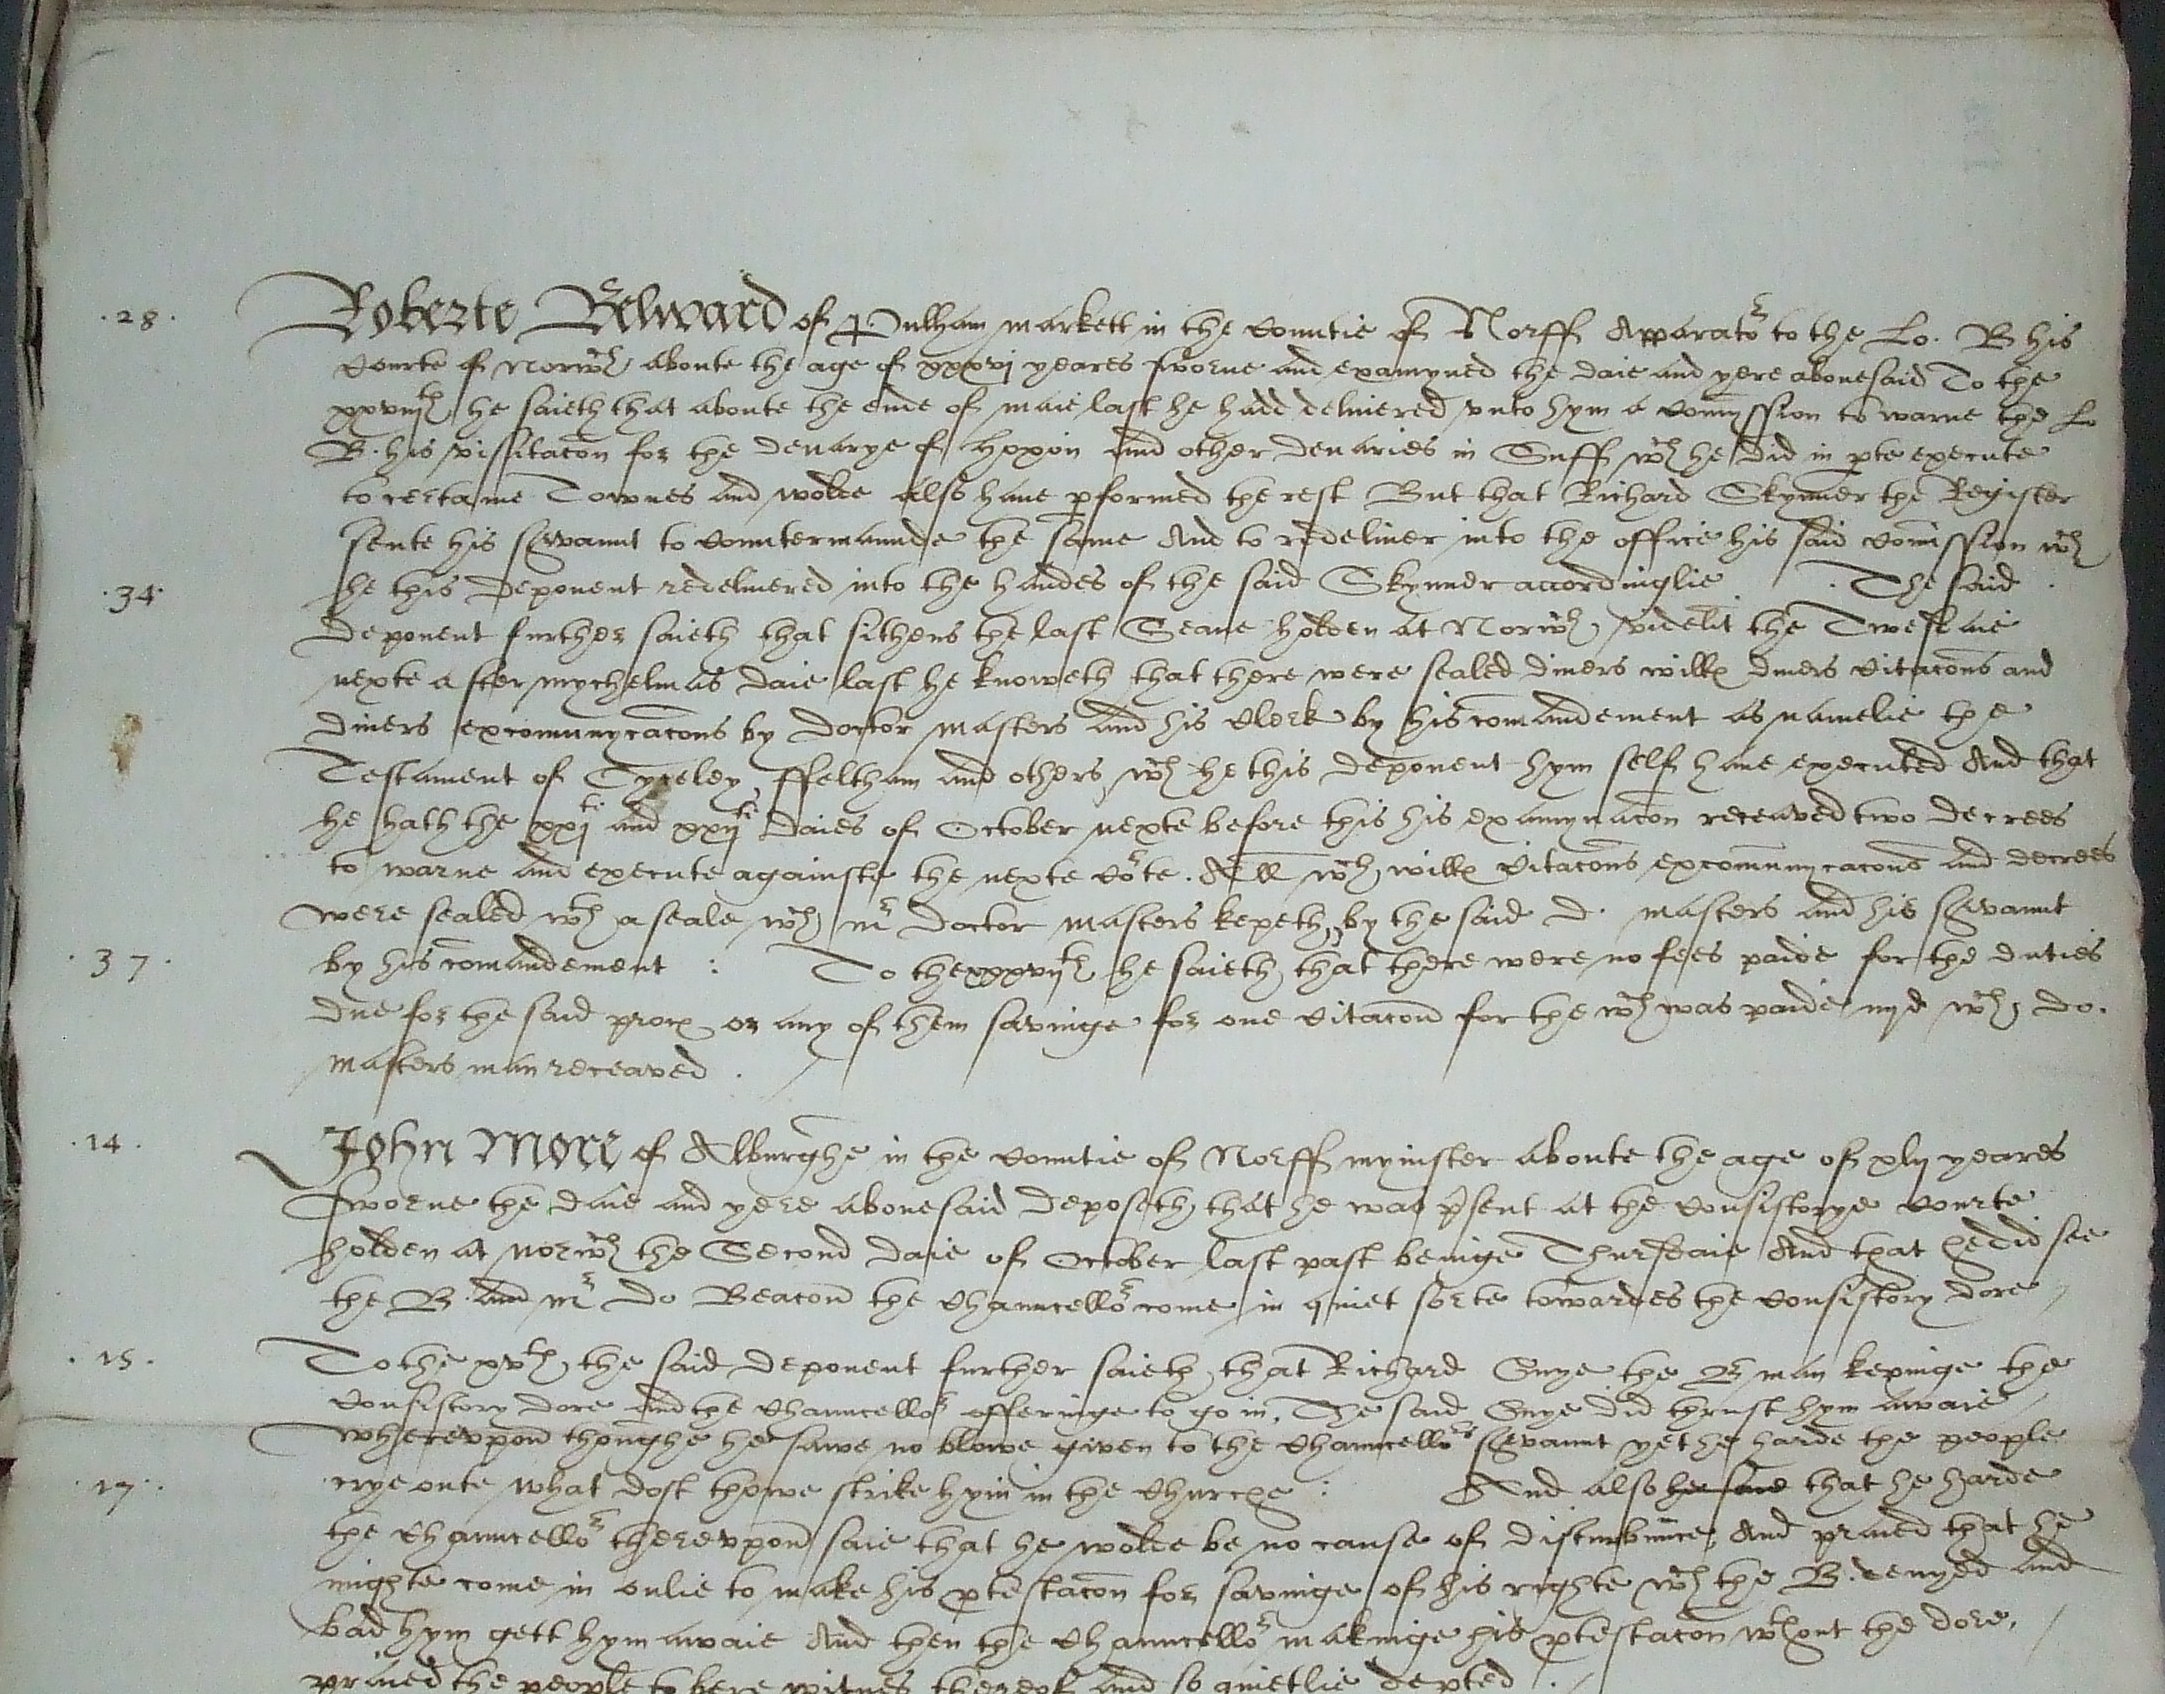 .28. Roberte Belward of Pulham markett in the countie of Norff Apparator to the Lo. B his
courte of Norwch aboute the age of xxxvj yeares sworne and examyned the daie and yere abovesaid To the
xxviijth he saieth that aboute the ende of maie last he hadd delivered unto hym a comyssion to warne the Lo
B. his vissitacon for the denarye of Hoxon and other denaries in Suff wch he did in pte execute
to certaine Townes and wolde also have pformed the rest But that Richard Skynner the Register
sente his servaunt to countermaunde the same And to redeliver into the office his said comission wch
he this deponent redelivered into the handes of the said Skynner accordinglie . The said
.34. deponent further saieth that sithens the last Seane holden at Norwch, videlit the Twesdaie
nexte after mychelmas daie last he knoweth that there were sealed divers willes divers citacons and
divers excomunycacons by doctor masters and his Clerk by his comandement as namelie the
Testament of ffeltham and others, wch he this deponent hym self have executed And that
he hath the xxjti and xxijti daies of October nexte before this his examynacon receaved two decrees
to warne and execute againste the nexte corte. All wch willes citacons excomunycacons and decrees
were sealed wth a seale wch mr doctor masters kepeth, by the said d. masters and his servaunt
by his comandement :
.37. To the xxxvijth he saieth that there were no fees paide for the duties
due for the said proces or any of them savinge for one citacon for the wch was paide iijd wch do.
masters man receaved .
.14. John More of Alburghe in the countie of Norff mynister aboute the age of xlij yeares
sworne the daie and yere abovesaid deposeth, that he was psent at the consistorye courte
holden at norwch the Second daie of October last past beinge Thursdaie And that he did see
the B. and mr do Beacon the Chauncellor come in quiet sorte towardes the consistory dore
.15. To the xvth, the said deponent further saieth, that Richard Snye the B man kepinge the
consistory dore and the Chauncellor offeringe to go in, The said Snye did thrust hym awaie
wherevppon thoughe he sawe no blowe given to the Chauncellors servaunt yet he harde the people
crye oute, what dost thowe strike hym in the Churche :
.17. And also he said that he harde
the Chauncellor therevppon saie that he wolde be no cause of disturbunce, And praied that he
mighte come in onlie to make his ptestacon for savinge of his righte wch the B. denyed and
bad hym gett hym awaie And then the Chauncellor makinge his ptestacon wthout the dore,
praied the people to bere witnes thereof and so quietlie depted .